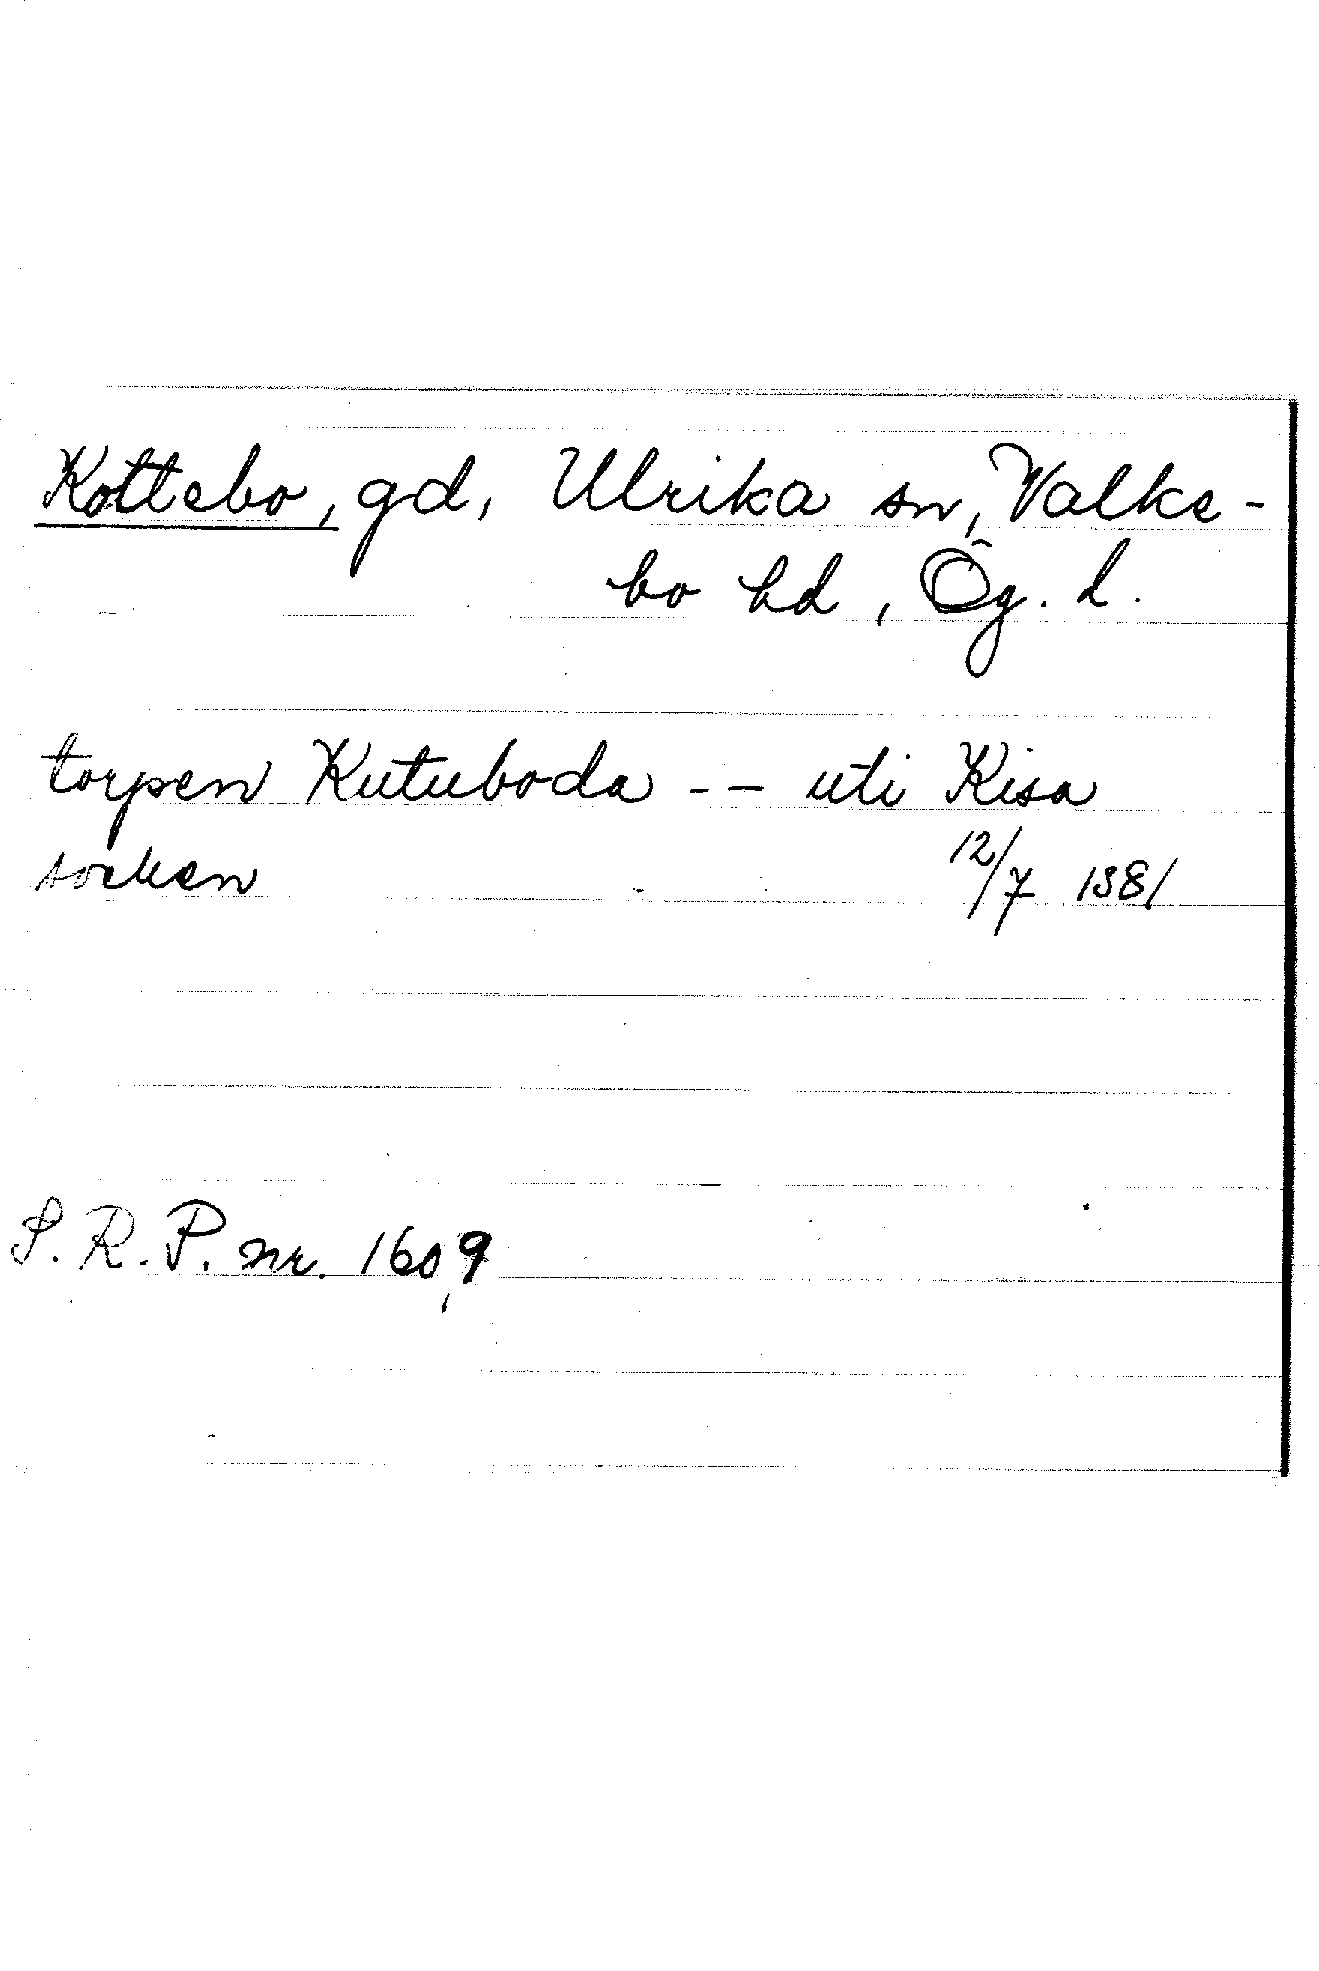 Kottebo, gd, Ulrika sn, Valke-
bo hd, Ög. l.
torpen Kutuboda -- uti Kisa
socken 12/7 1381
S. R. P. nr. 1609